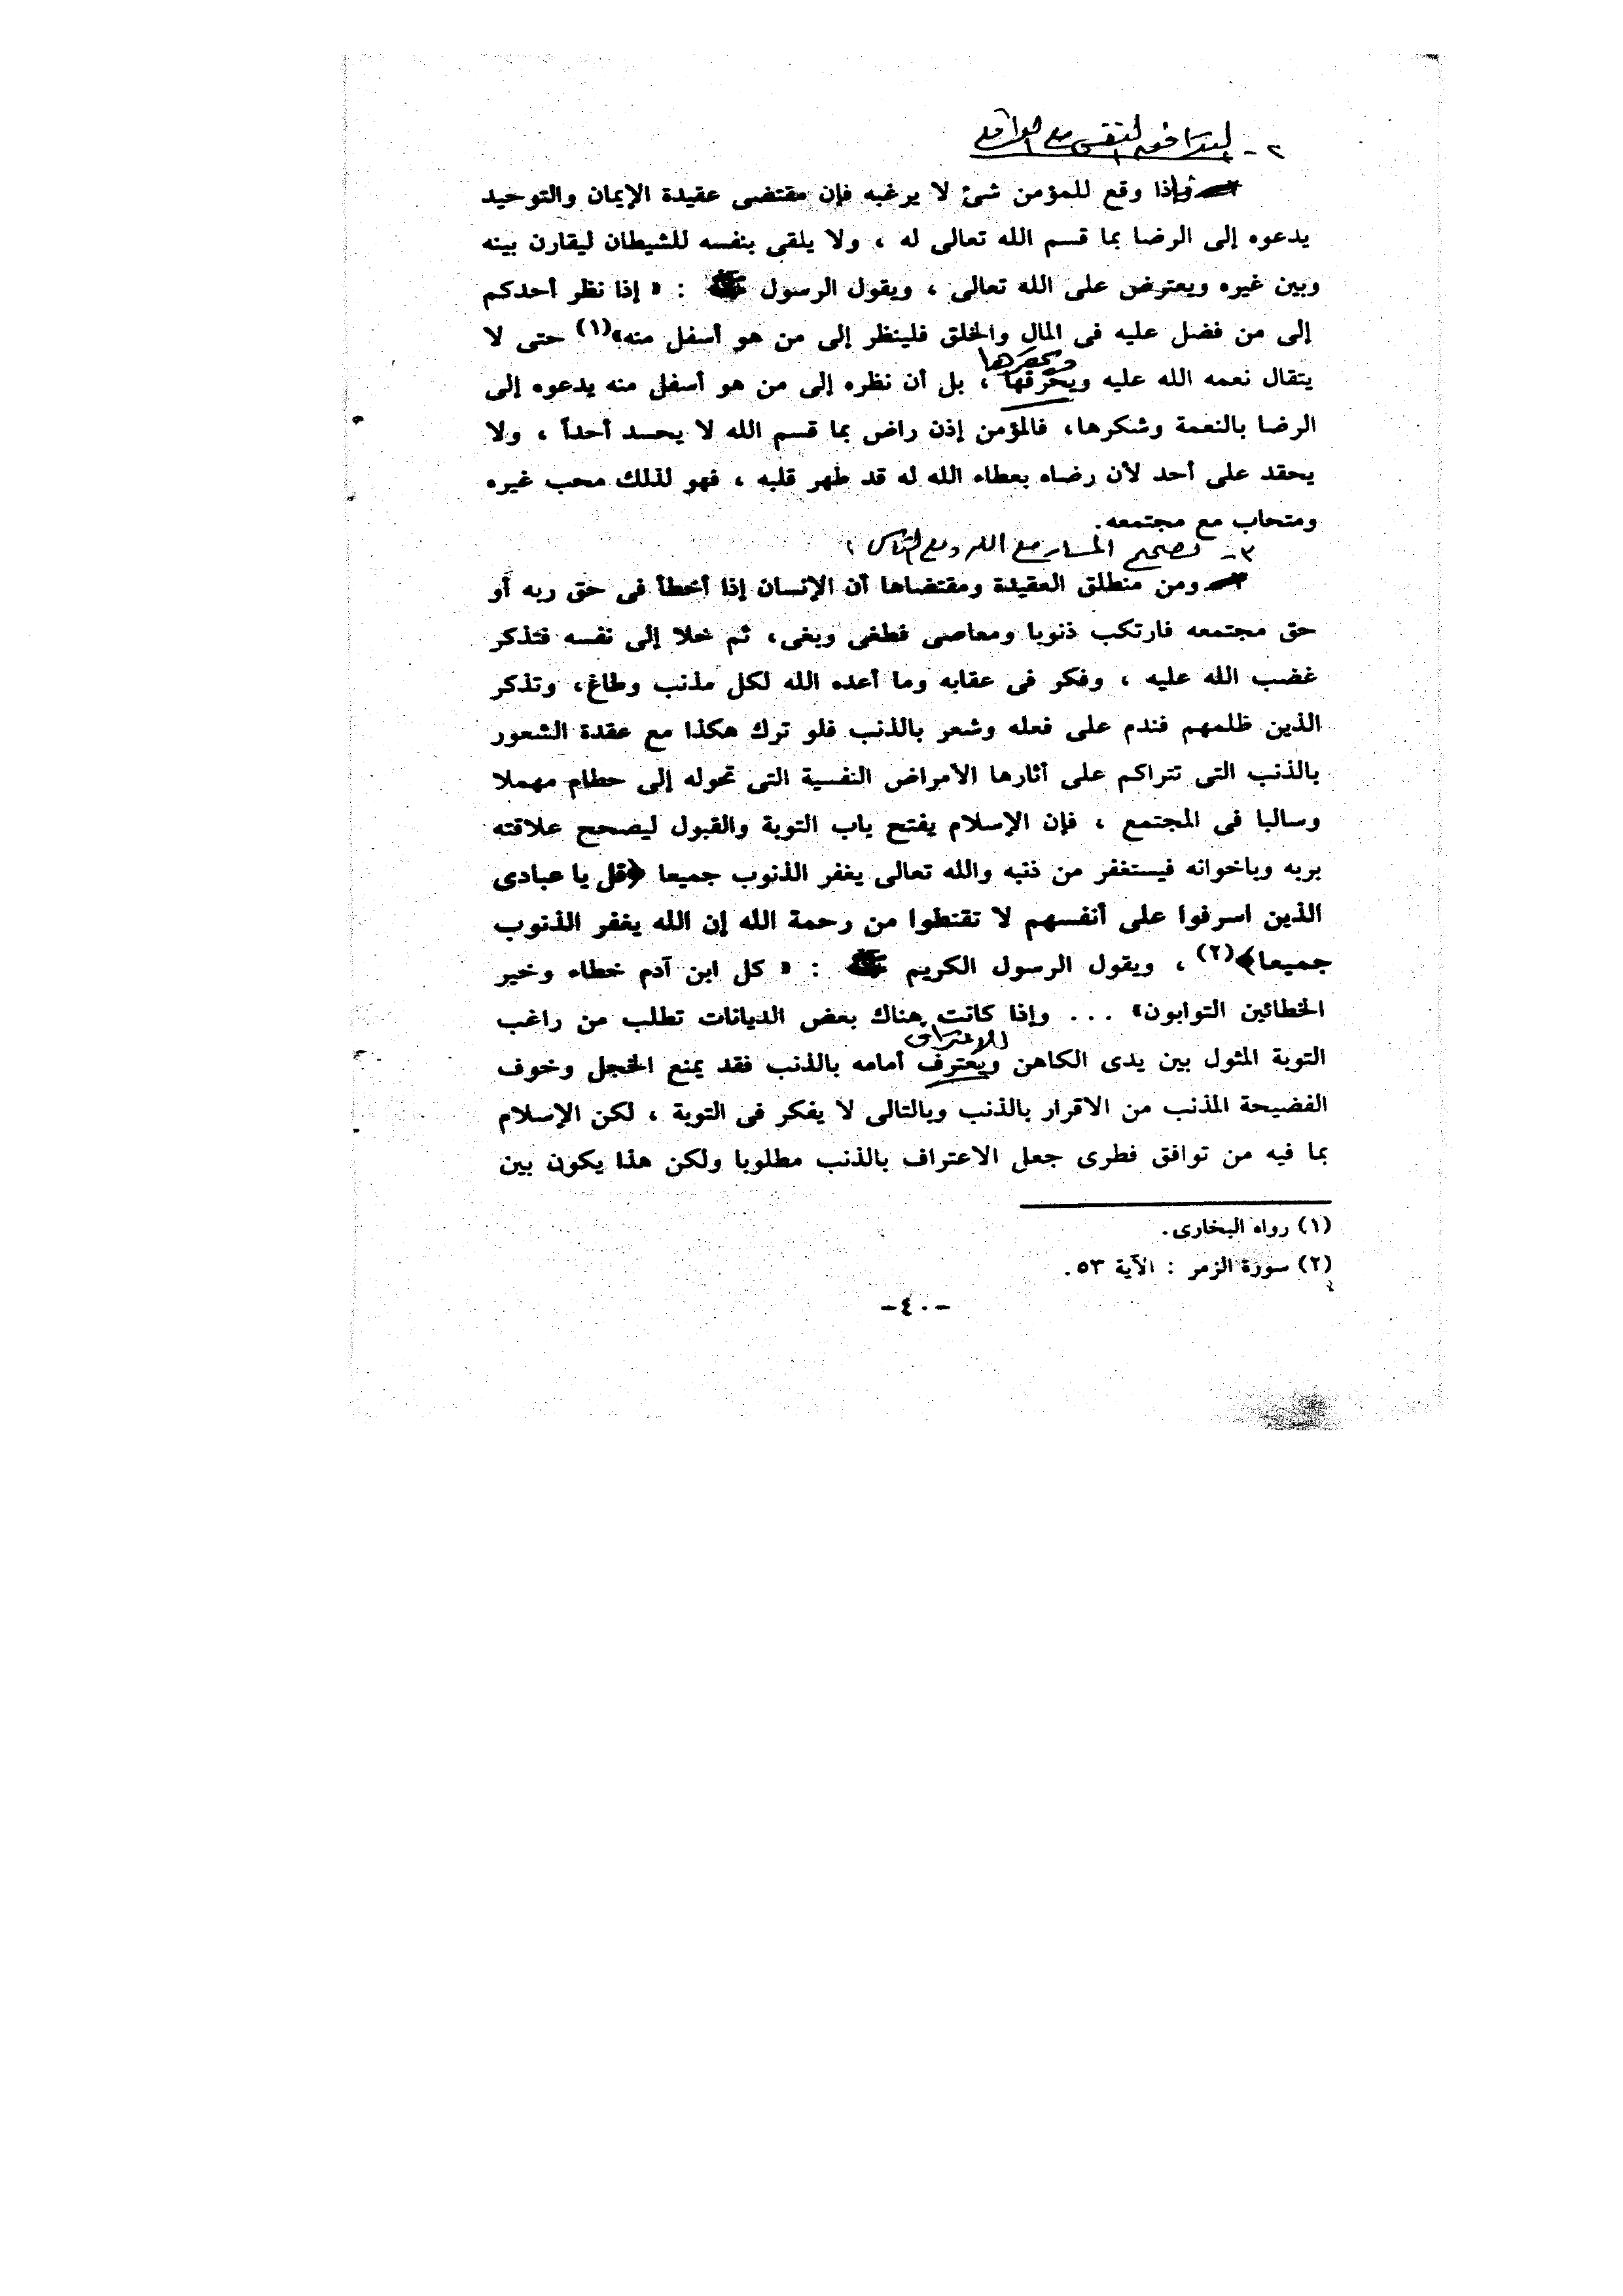 ٢ - التوافق النفسى مع الواقع
وإذا وقع للمؤمن شئ لا يرغبه فإن مقتضى عقيدة الإيمان والتوحيد
يدعوه إلى الرضا بما قسم الله تعالى له ، ولا يلقى بنفسه للشيطان ليقارن بينه
وبين غيره ويعترض على الله تعالى ، ويقول الرسول ﷺ : « إذا نظر أحدكم
إلى من فضل عليه فى المال والخلق فلينظر إلى من هو أسفل منه»(١) حتى لا
ويحقرها
يتقال نعمه الله عليه ويحرقها ، بل أن نظره إلى من هو أسفل منه يدعوه إلى
الرضا بالنعمة وشكرها، فالمؤمن إذن راض بما قسم الله لا يحسد أحداً ، ولا
يحقد على أحد لأن رضاه بعطاء الله له قد طهر قلبه ، فهو لذلك محب غيره
ومتحاب مع مجتمعه.
٣ - تصحيح المسار مع الله ومع الناس :
ومن منطلق العقيدة ومقتضاها أن الإنسان إذا أخطأ فى حق ربه أو
حق مجتمعه فارتكب ذنوبا ومعاصى فطغى وبغى، ثم خلا إلى نفسه فتذكر
غضب الله عليه ، وفكر فى عقابه وما أعده الله لكل مذنب وطاغ، وتذكر
الذين ظلمهم فندم على فعله وشعر بالذنب فلو ترك هكذا مع عقدة الشعور
بالذنب التى تتراكم على أثارها الأمراض النفسية التى تحوله إلى حطام مهملا
وسالبا فى المجتمع ، فإن الإسلام يفتح ياب التوبة والقبول ليصحح علاقته
بربه وباخوانه فيستغفر من ذنبه والله تعالى يغفر الذنوب جميعا ﴿قل يا عبادى
الذين اسرفوا على أنفسهم لا تقنطوا من رحمة الله إن الله يغفر الذنوب
جميعا﴾(٢) ، ويقول الرسول الكريم ﷺ : « كل ابن آدم خطاء وخير
الخطائين التوابون» ... وإذا كانت هناك بعض الديانات تطلب من راغب
للاعتراف
التوبة المثول بين يدى الكاهن ويعترف أمامه بالذنب فقد يمنع الخجل وخوف
الفضيحة المذنب من الاقرار بالذنب وبالتالى لا يفكر فى التوبة ، لكن الإسلام
بما فيه من توافق فطرى جعل الاعتراف بالذنب مطلوبا ولكن هذا يكون بين
(١) رواه البخارى.
(٢) سورة الزمر : الآية ٥٣.
-٤٠-